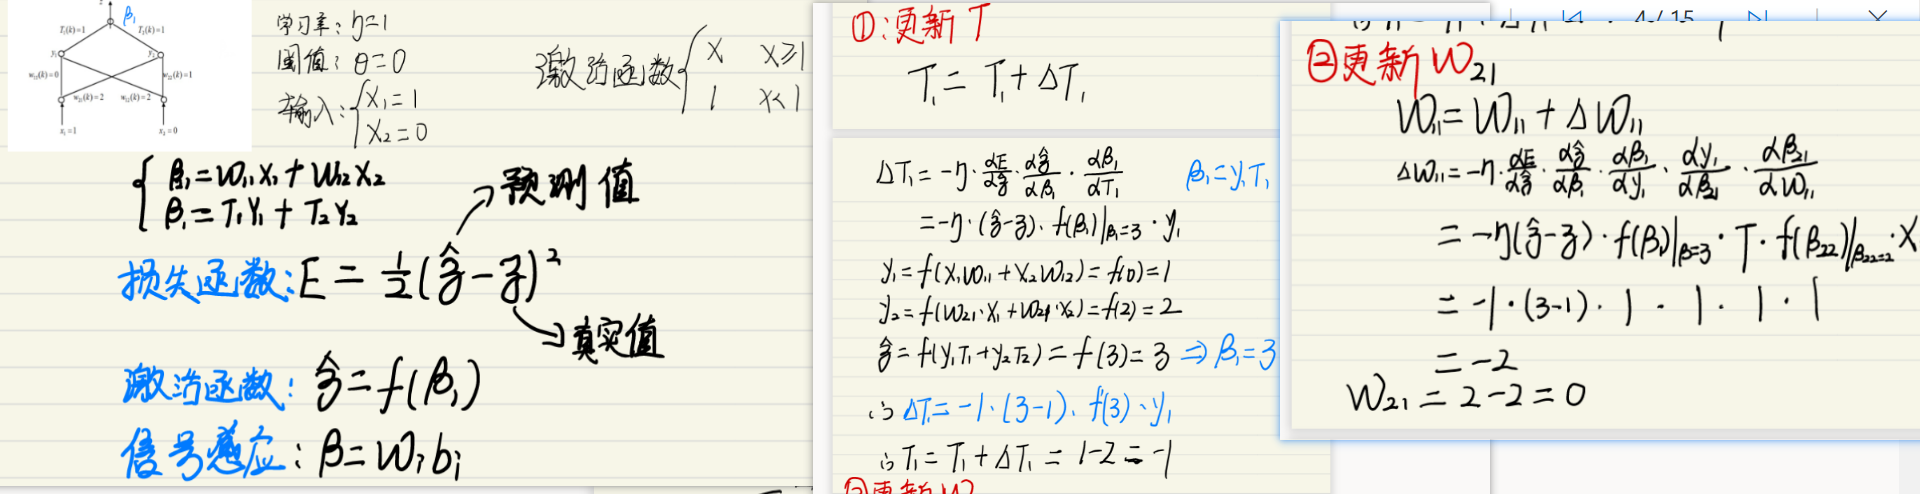 z
β₁
T₁(k)=1
T₂(k)=1
y₁
y₂
w₁₁(k)=0
w₂₂(k)=1
w₂₁(k)=2
w₁₂(k)=2
x₁=1
x₂=0
学习率: η=1
阈值: θ=0
输入: { x₁=1
x₂=0
激活函数 { x x≥1
1 x<1
{ β₁₁=W₁₁X₁+W₁₂X₂
β₁=T₁Y₁+T₂Y₂
预测值
损失函数: E=½(ẑ-z)²
真实值
激活函数: ẑ=f(β₁)
信号感应: β=Wᵢbᵢ
①:更新T
T₁=T₁+ΔT₁
ΔT₁=-η·αE/αẑ·αẑ/αβ₁·αβ₁/αT₁ β₁=y₁T₁
=-η·(ẑ-z)·f(β₁)|β₁=3·y₁
y₁=f(X₁W₁₁+X₂W₁₂)=f(0)=1
y₂=f(W₂₁·X₁+W₂₄·X₂)=f(2)=2
ẑ=f(y₁T₁+y₂T₂)=f(3)=3 ⇒ β₁=3
∴ ΔT₁=-1·(3-1)·f'(3)·y₁
∴ T₁=T₁+ΔT₁=1-2=-1
②更新W
4 / 15
②更新W₂₁
W₁₁=W₁₁+ΔW₁₁
ΔW₁₁=-η·αE/αẑ·αẑ/αβ₁·αβ₁/αy₁·αy₁/αβ₂₁·αβ₂₁/αW₁₁
=-η(ẑ-z)·f(β₁)|β=3·T·f(β₂₂)|β₂₂=2·X
=-1·(3-1)·1·1·1·1
=-2
W₂₁=2-2=0